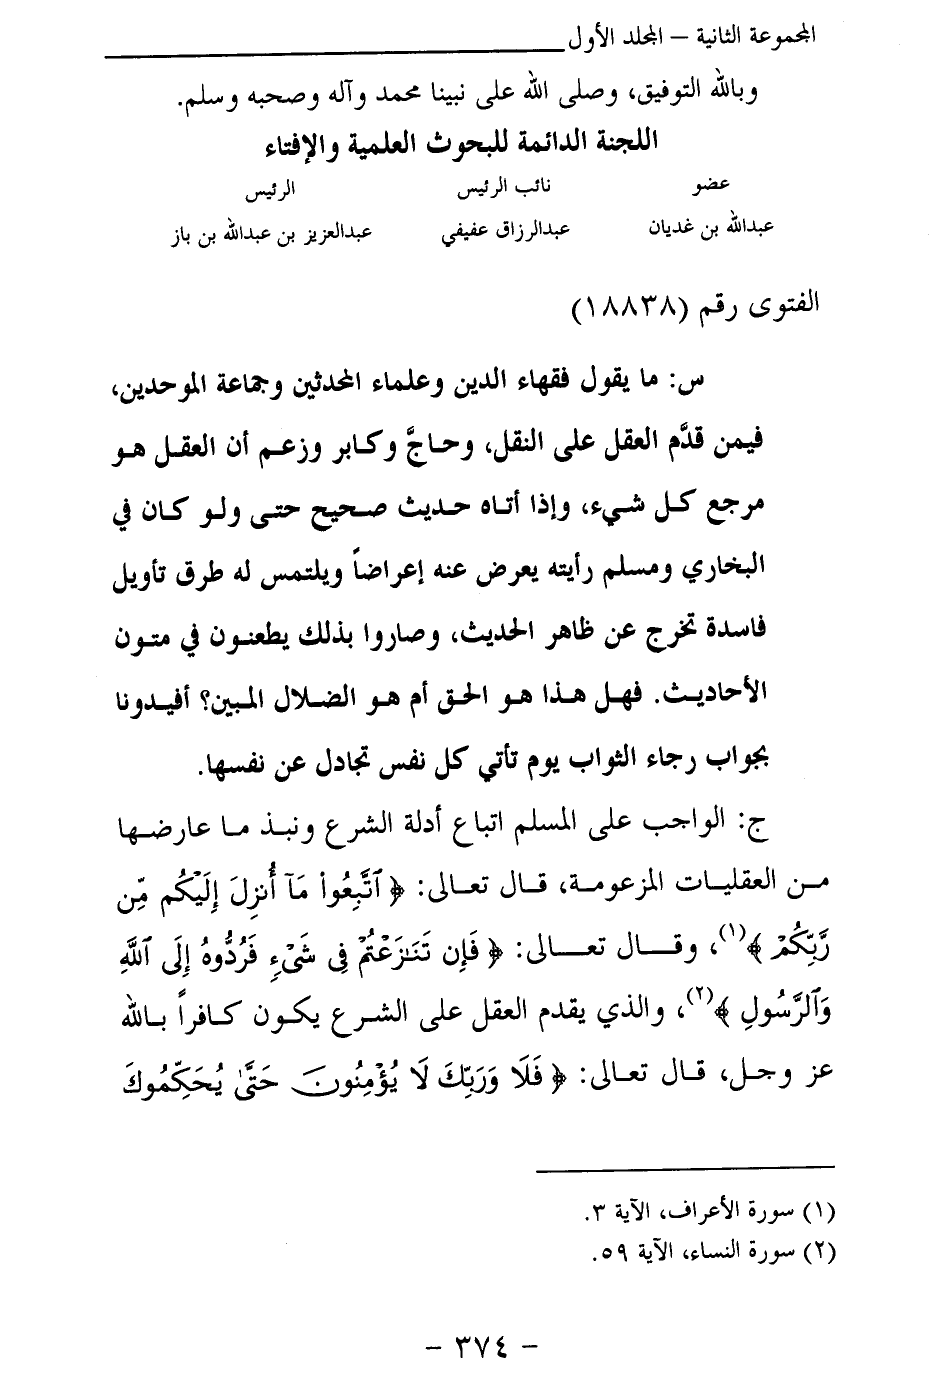 المجموعة الثانية – المجلد الأول
وبالله التوفيق، وصلى الله على نبينا محمد وآله وصحبه وسلم.
اللجنة الدائمة للبحوث العلمية والإفتاء
عضو نائب الرئيس الرئيس
عبدالله بن غديان عبدالرزاق عفيفي عبدالعزيز بن عبدالله بن باز
الفتوى رقم (١٨٨٣٨)
س: ما يقول فقهاء الدين وعلماء المحدثين وجماعة الموحدين،
فيمن قدَّم العقل على النقل، وحاجَّ وكابر وزعم أن العقل هو
مرجع كل شيء، وإذا أتاه حديث صحيح حتى ولو كان في
البخاري ومسلم رأيته يعرض عنه إعراضاً ويلتمس له طرق تأويل
فاسدة تخرج عن ظاهر الحديث، وصاروا بذلك يطعنون في متون
الأحاديث. فهل هذا هو الحق أم هو الضلال المبين؟ أفيدونا
بجواب رجاء الثواب يوم تأتي كل نفس تجادل عن نفسها.
ج: الواجب على المسلم اتباع أدلة الشرع ونبذ ما عارضها
من العقليات المزعومة، قال تعالى: ﴿ ٱتَّبِعُوا۟ مَآ أُنزِلَ إِلَيْكُم مِّن
رَّبِّكُمْ ﴾(١)، وقال تعالى: ﴿ فَإِن تَنَـٰزَعْتُمْ فِى شَىْءٍ فَرُدُّوهُ إِلَى ٱللَّهِ
وَٱلرَّسُولِ ﴾(٢)، والذي يقدم العقل على الشرع يكون كافراً بالله
عز وجل، قال تعالى: ﴿ فَلَا وَرَبِّكَ لَا يُؤْمِنُونَ حَتَّىٰ يُحَكِّمُوكَ
(١) سورة الأعراف، الآية ٣.
(٢) سورة النساء، الآية ٥٩.
- ٣٧٤ -